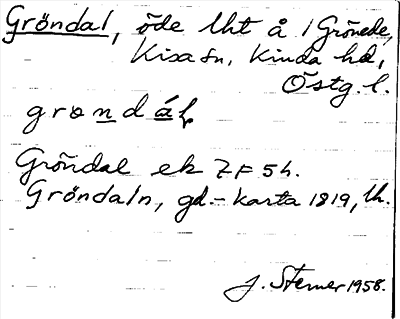 Gröndal, öde lht å 1 Grönede,
Kisa sn, Kinda hd,
Östg. l.
grøndál
Gröndal ek 7F5h.
Gröndaln, gd.- karta 1819, lh.
J. Sterner 1958.